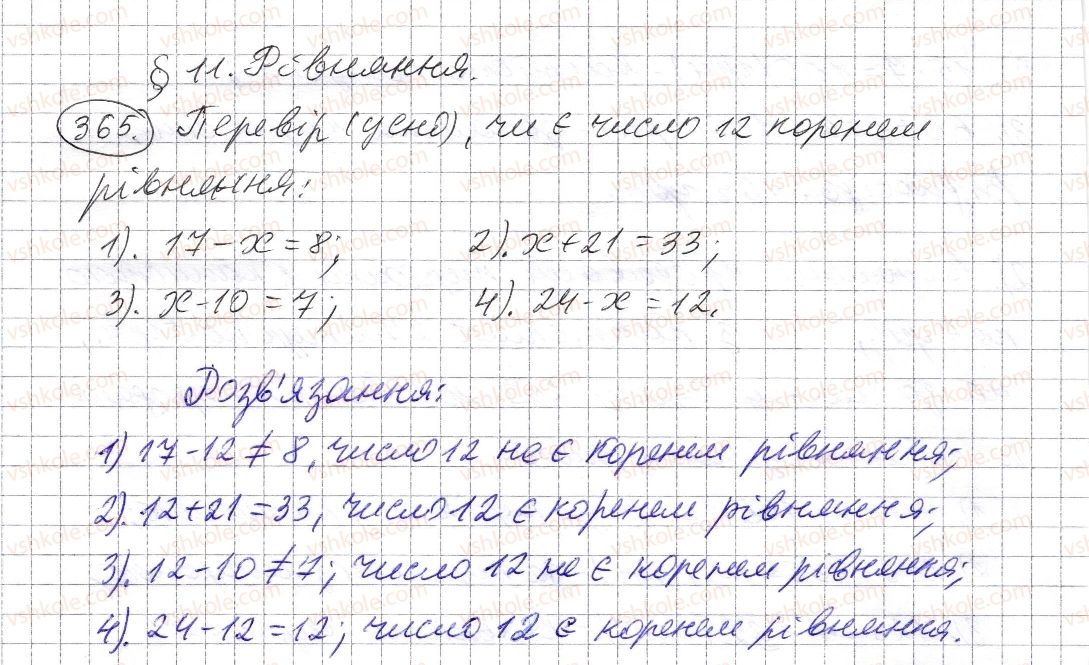 § 11. Рівняння.
365. Перевір (усно), чи є число 12 коренем
рівняння:
1). 17 - x = 8; 2). x + 21 = 33;
3). x - 10 = 7; 4). 24 - x = 12.
Розв'язання:
1) 17 - 12 ≠ 8, число 12 не є коренем рівняння;
2). 12 + 21 = 33, число 12 є коренем рівняння;
3). 12 - 10 ≠ 7; число 12 не є коренем рівняння;
4). 24 - 12 = 12; число 12 є коренем рівняння.